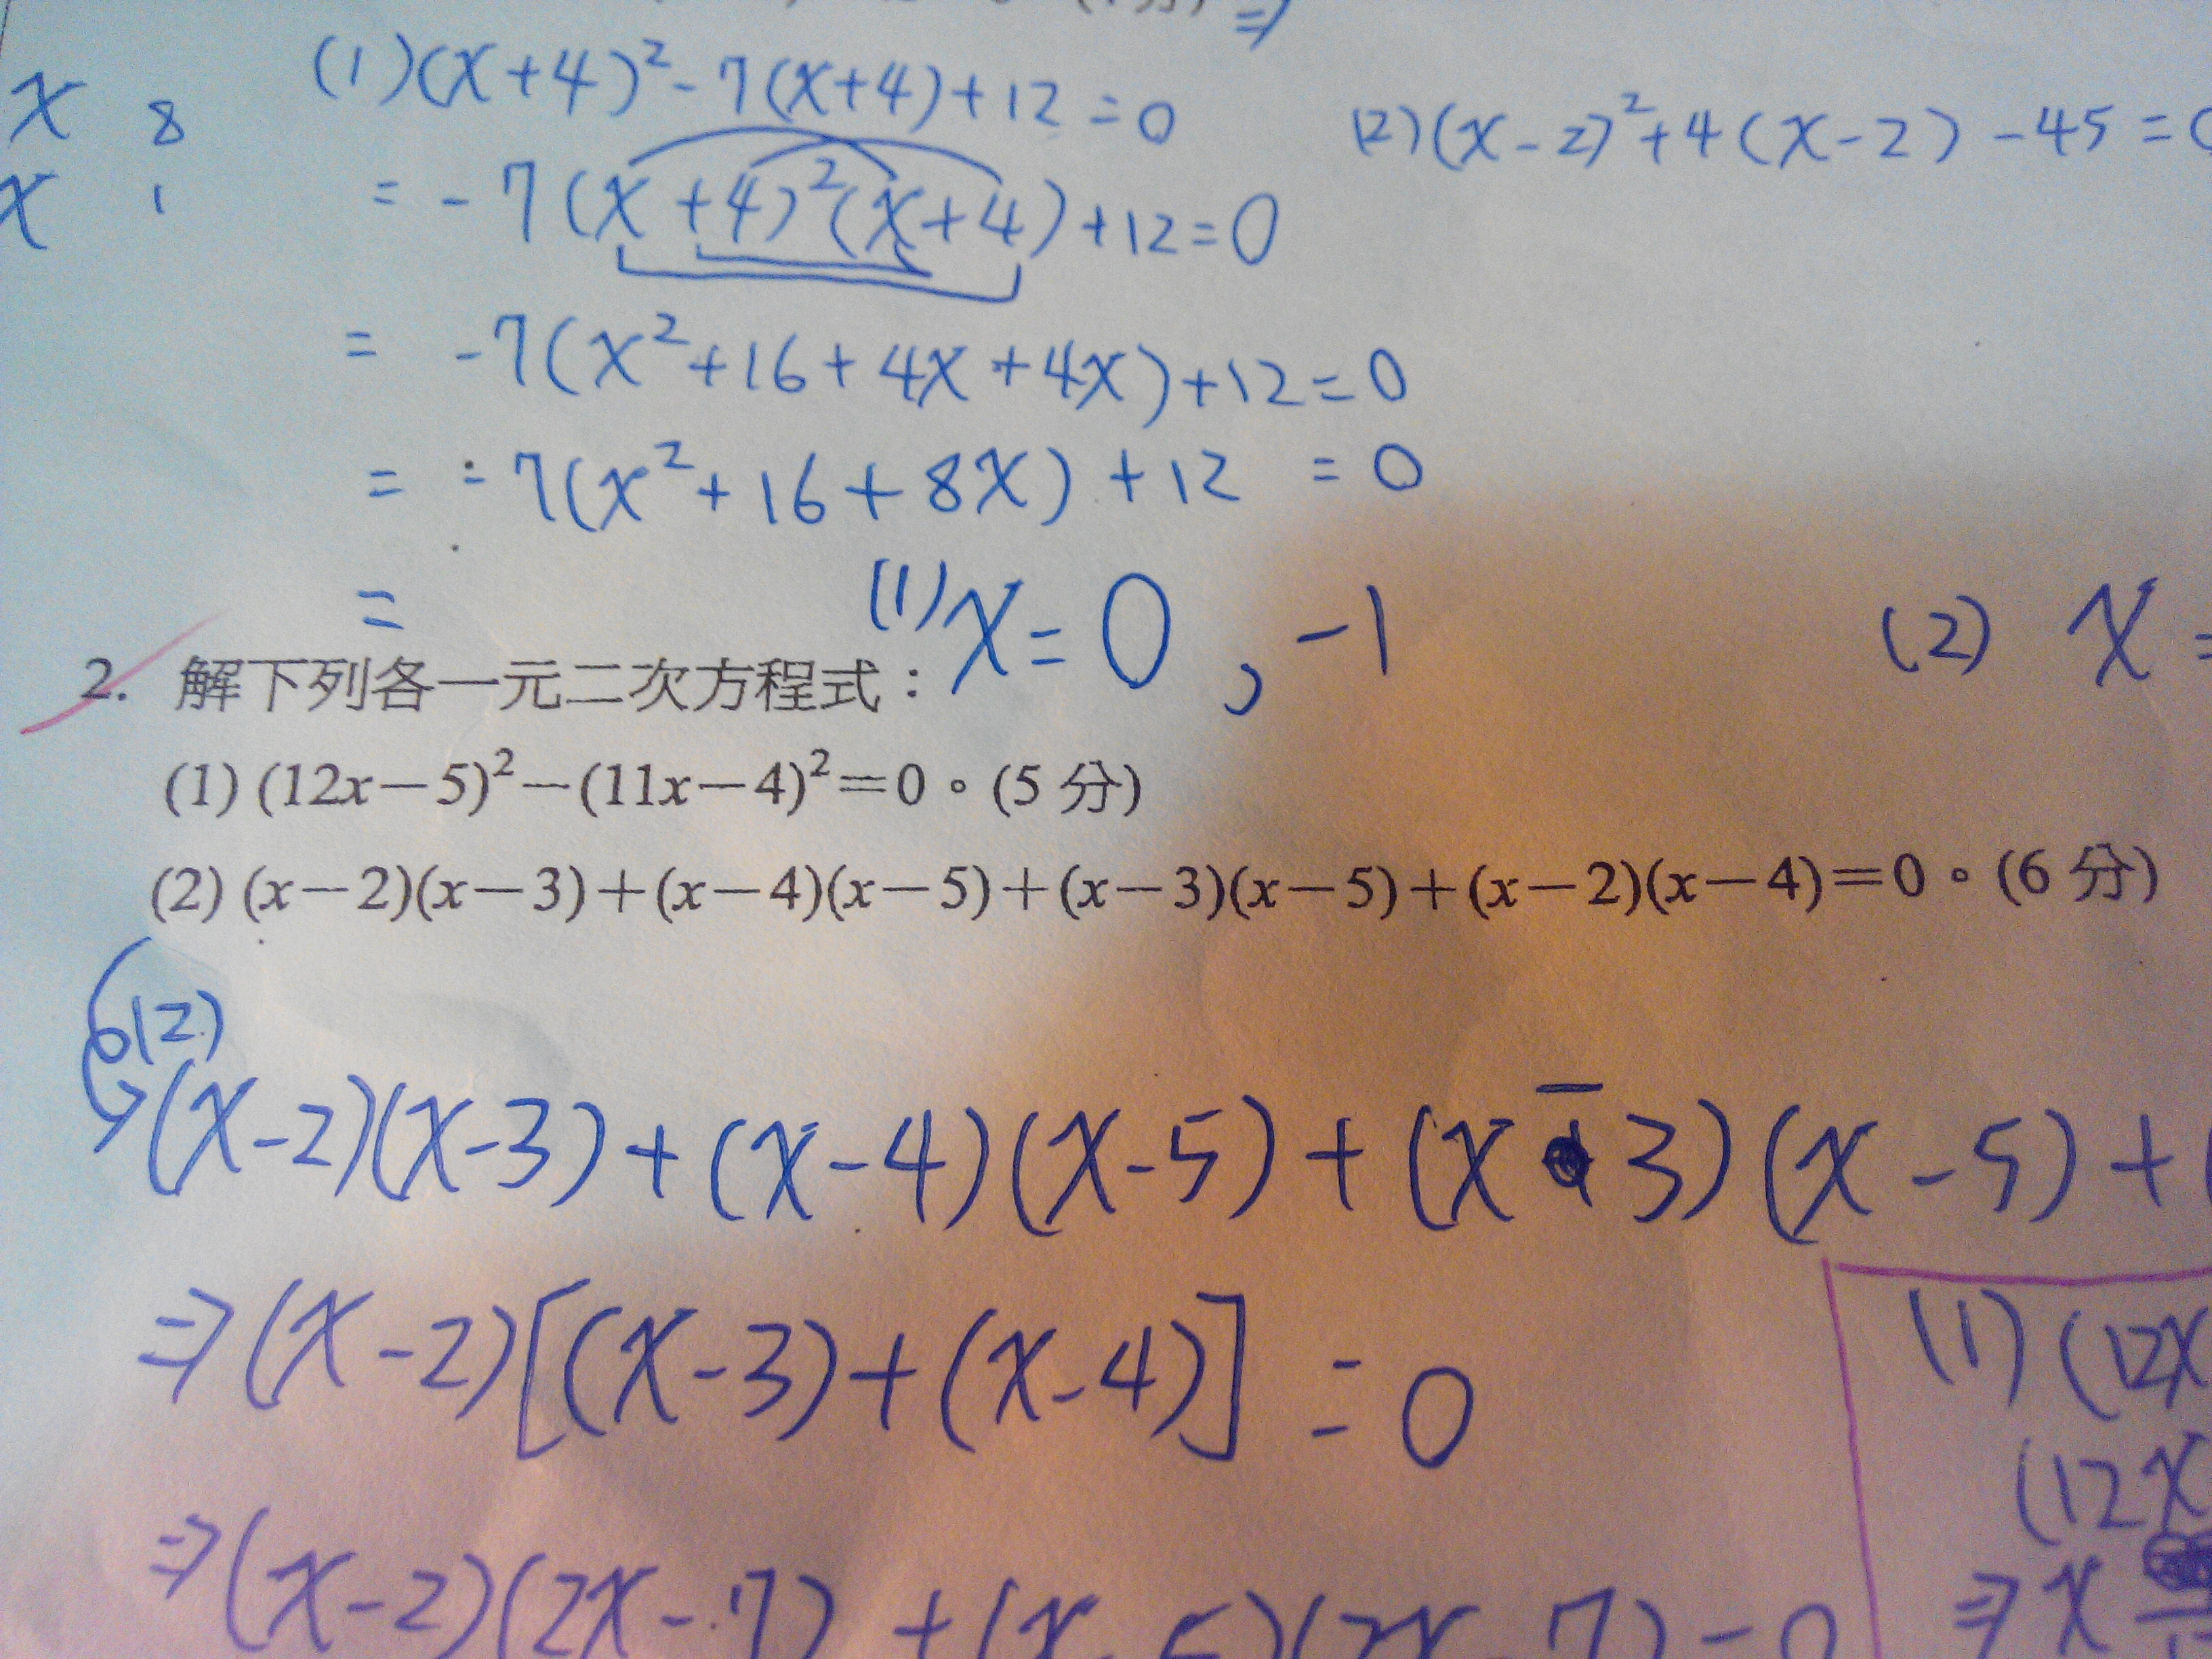 (1)(x+4)²-7(x+4)+12=0
(2)(x-2)²+4(x-2)-45=0
x 8
x 1
=-7(x+4)²(x+4)+12=0
=-7(x²+16+4x+4x)+12=0
=-7(x²+16+8x)+12=0
=
(1)x=0,-1
(2) x=
2. 解下列各一元二次方程式：
(1) (12x－5)²－(11x－4)²＝0。(5 分)
(2) (x－2)(x－3)＋(x－4)(x－5)＋(x－3)(x－5)＋(x－2)(x－4)＝0。(6 分)
(2)
(x-2)(x-3)+(x-4)(x-5)+(x-3)(x-5)+(
⇒(x-2)[(x-3)+(x-4)]=0
(1)(12x
(12x
⇒(x-2)(2x-7)+(x-5)(2x-7)=0
⇒x